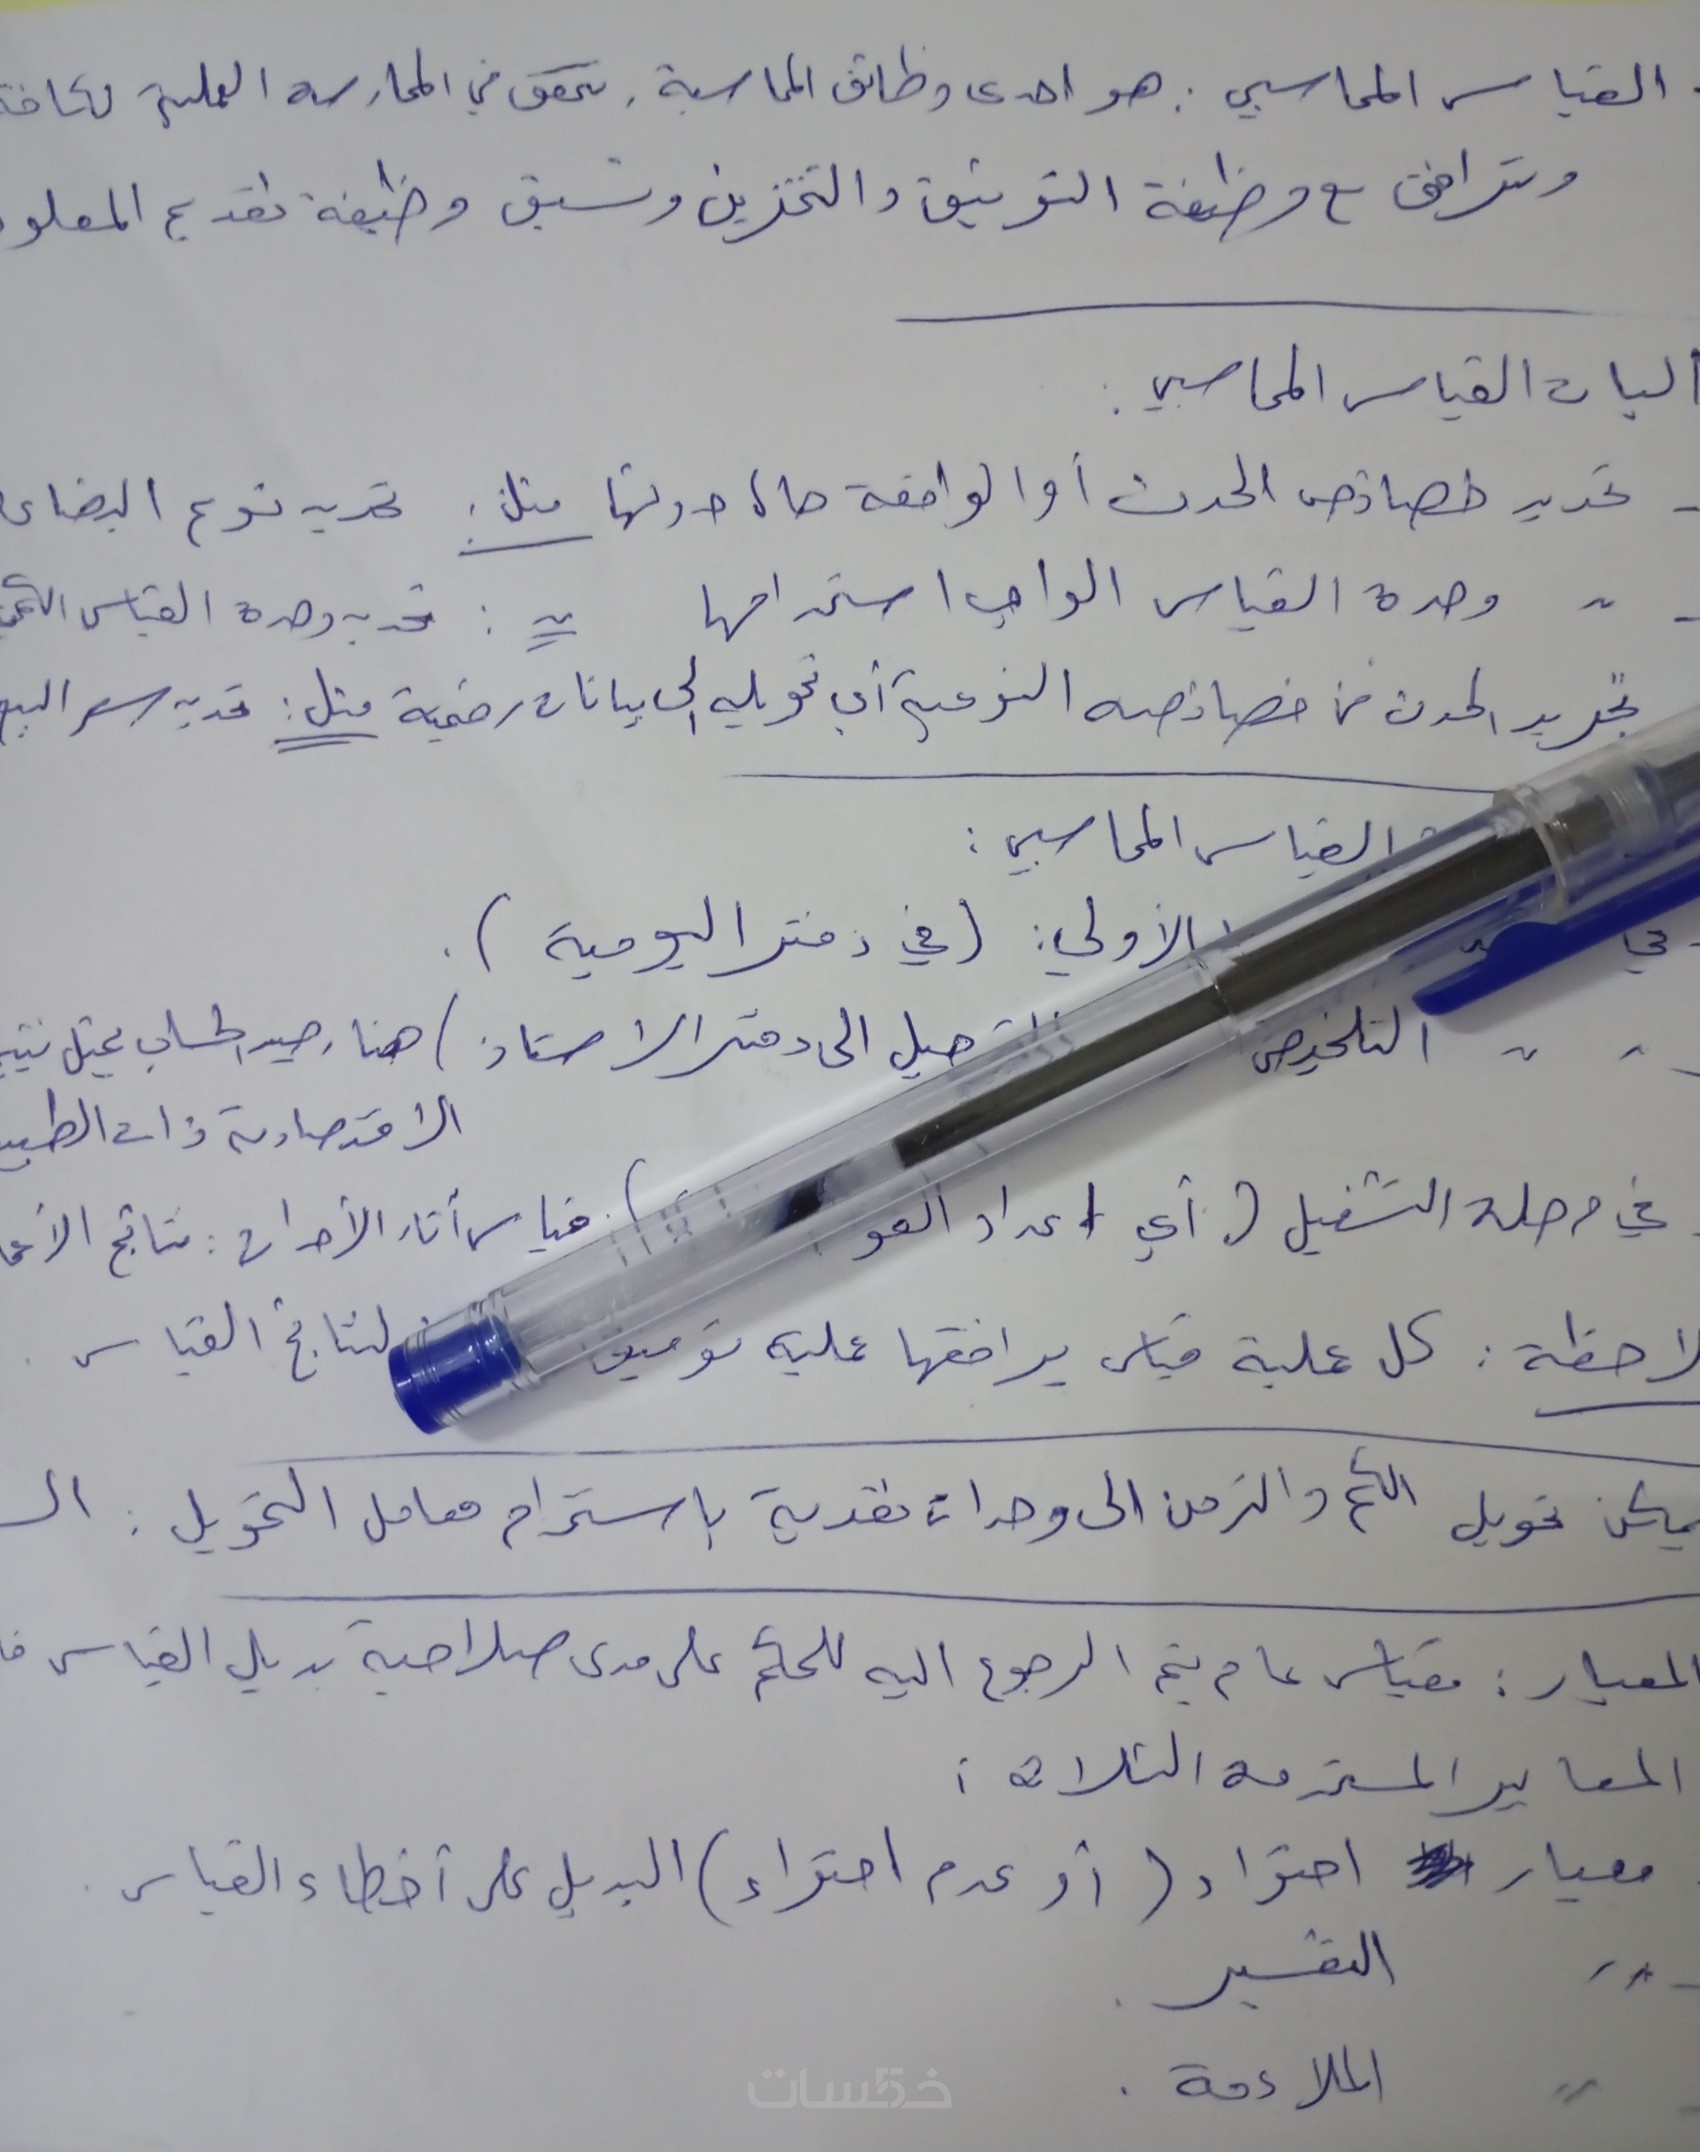 القياس المحاسبي : هو احدى وظائف المحاسبة , تتحقق في الممارسة العملية لكافة
وتترافق مع وظيفة التوثيق والتخزين وتسبق وظيفة تقديم
آليات القياس المحاسبي :
- تحديد خصائص الحدث أو الواقعة حال حدوثها مثل : تحديد نوع
- " وحدة القياس الواجب استخدامها " : تحديد وحدة القياس
تجريد الحدث من خصائصه النوعية أي تحويله إلى بيانات رقمية مثل : تحديد سعر
القياس المحاسبي :
- في " الأولي : ( في دفتر اليومية ) .
- " " التلخيص الى دفتر الاستاذ ) هنا رصيد الحساب يمثل
الاقتصادية ذات
في مرحلة التشغيل ( أي اعداد ) . قياس آثار الأحداث : نتائج
كل عملية قياس يرافقها عملية توثيق لنتائج القياس .
يمكن تحويل الكم والزمن الى وحدات نقدية باستخدام معامل التحويل :
المعيار : مقياس عام يتم الرجوع اليه للحكم على مدى صلاحية بديل القياس
المعايير المستخدمة الثلاثة :
معيار احتواء ( أو عدم احتواء ) البديل على أخطاء القياس .
- " التفسير .
- " الملاءمة .
خمسات